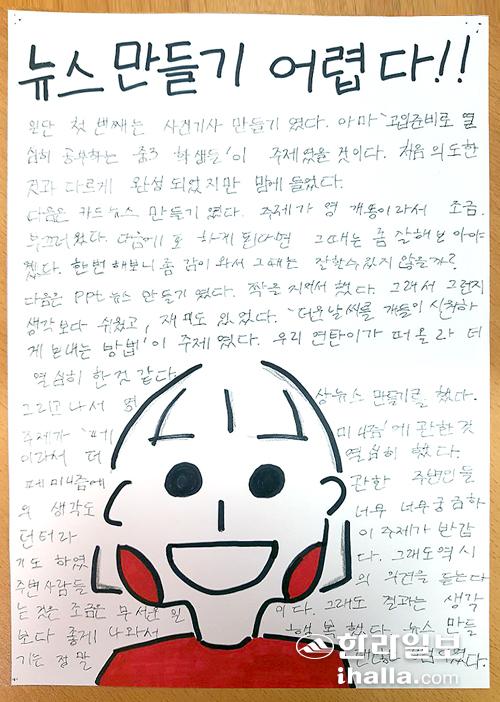 뉴스 만들기 어렵다!!
일단 첫 번째는 사진기사 만들기 였다. 아마 '고입준비로 열
심히 공부하는 중3 학생들'이 주제였을 것이다. 처음 의도한
것과 다르게 완성되었지만 맘에 들었다.
다음은 카드뉴스 만들기 였다. 주제가 영 개똥이라서 조금
부끄러웠다. 다음에 또 하게 된다면 그때는 좀 잘해보아야
겠다. 한번 해보니 좀 감이 와서 그때는 잘할수 있지 않을까?
다음은 PPt 뉴스 만들기 였다. 짝을 지어서 했다. 그래서 그런지
생각보다 쉬웠고, 재미도 있었다. '더운날씨를 개들이 시원하
게 보내는 방법'이 주제였다. 우리 연탄이가 떠올라 더
열심히 한것 같다.
그리고 나서 영상뉴스 만들기를 했다.
주제가 '페미니즘'에 관한 것
이라서 더 열심히 했다.
페미니즘에 관한 주변인들
의 생각도 너무 너무 궁금하
던터라 이 주제가 반갑
기도 하였다. 그래도 역시
주변사람들의 의견을 듣는다
는 것은 조금은 무서운 일이다. 그래도 결과는 생각
보다 좋게 나와서 행복했다. 뉴스 만들
기는 정말
한라일보
ihalla.com